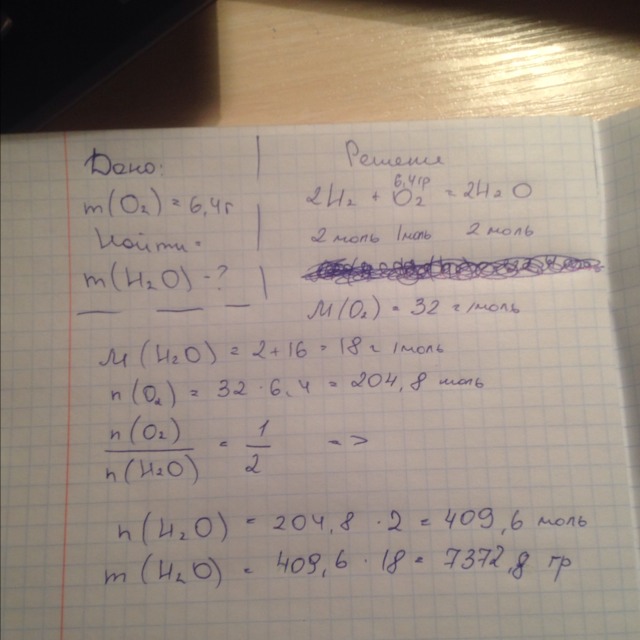 Дано:
m(O₂) = 6,4г
Найти:
m(H₂O) - ?
Решение
6,4гр
2H₂ + O₂ = 2H₂O
2 моль 1моль 2 моль
M(O₂) = 32 г/моль
M(H₂O) = 2+16 = 18 г/моль
n(O₂) = 32 · 6,4 = 204,8 моль
n(O₂)
n(H₂O)
= 1/2 =>
n(H₂O) = 204,8 · 2 = 409,6 моль
m(H₂O) = 409,6 · 18 = 7372,8 гр